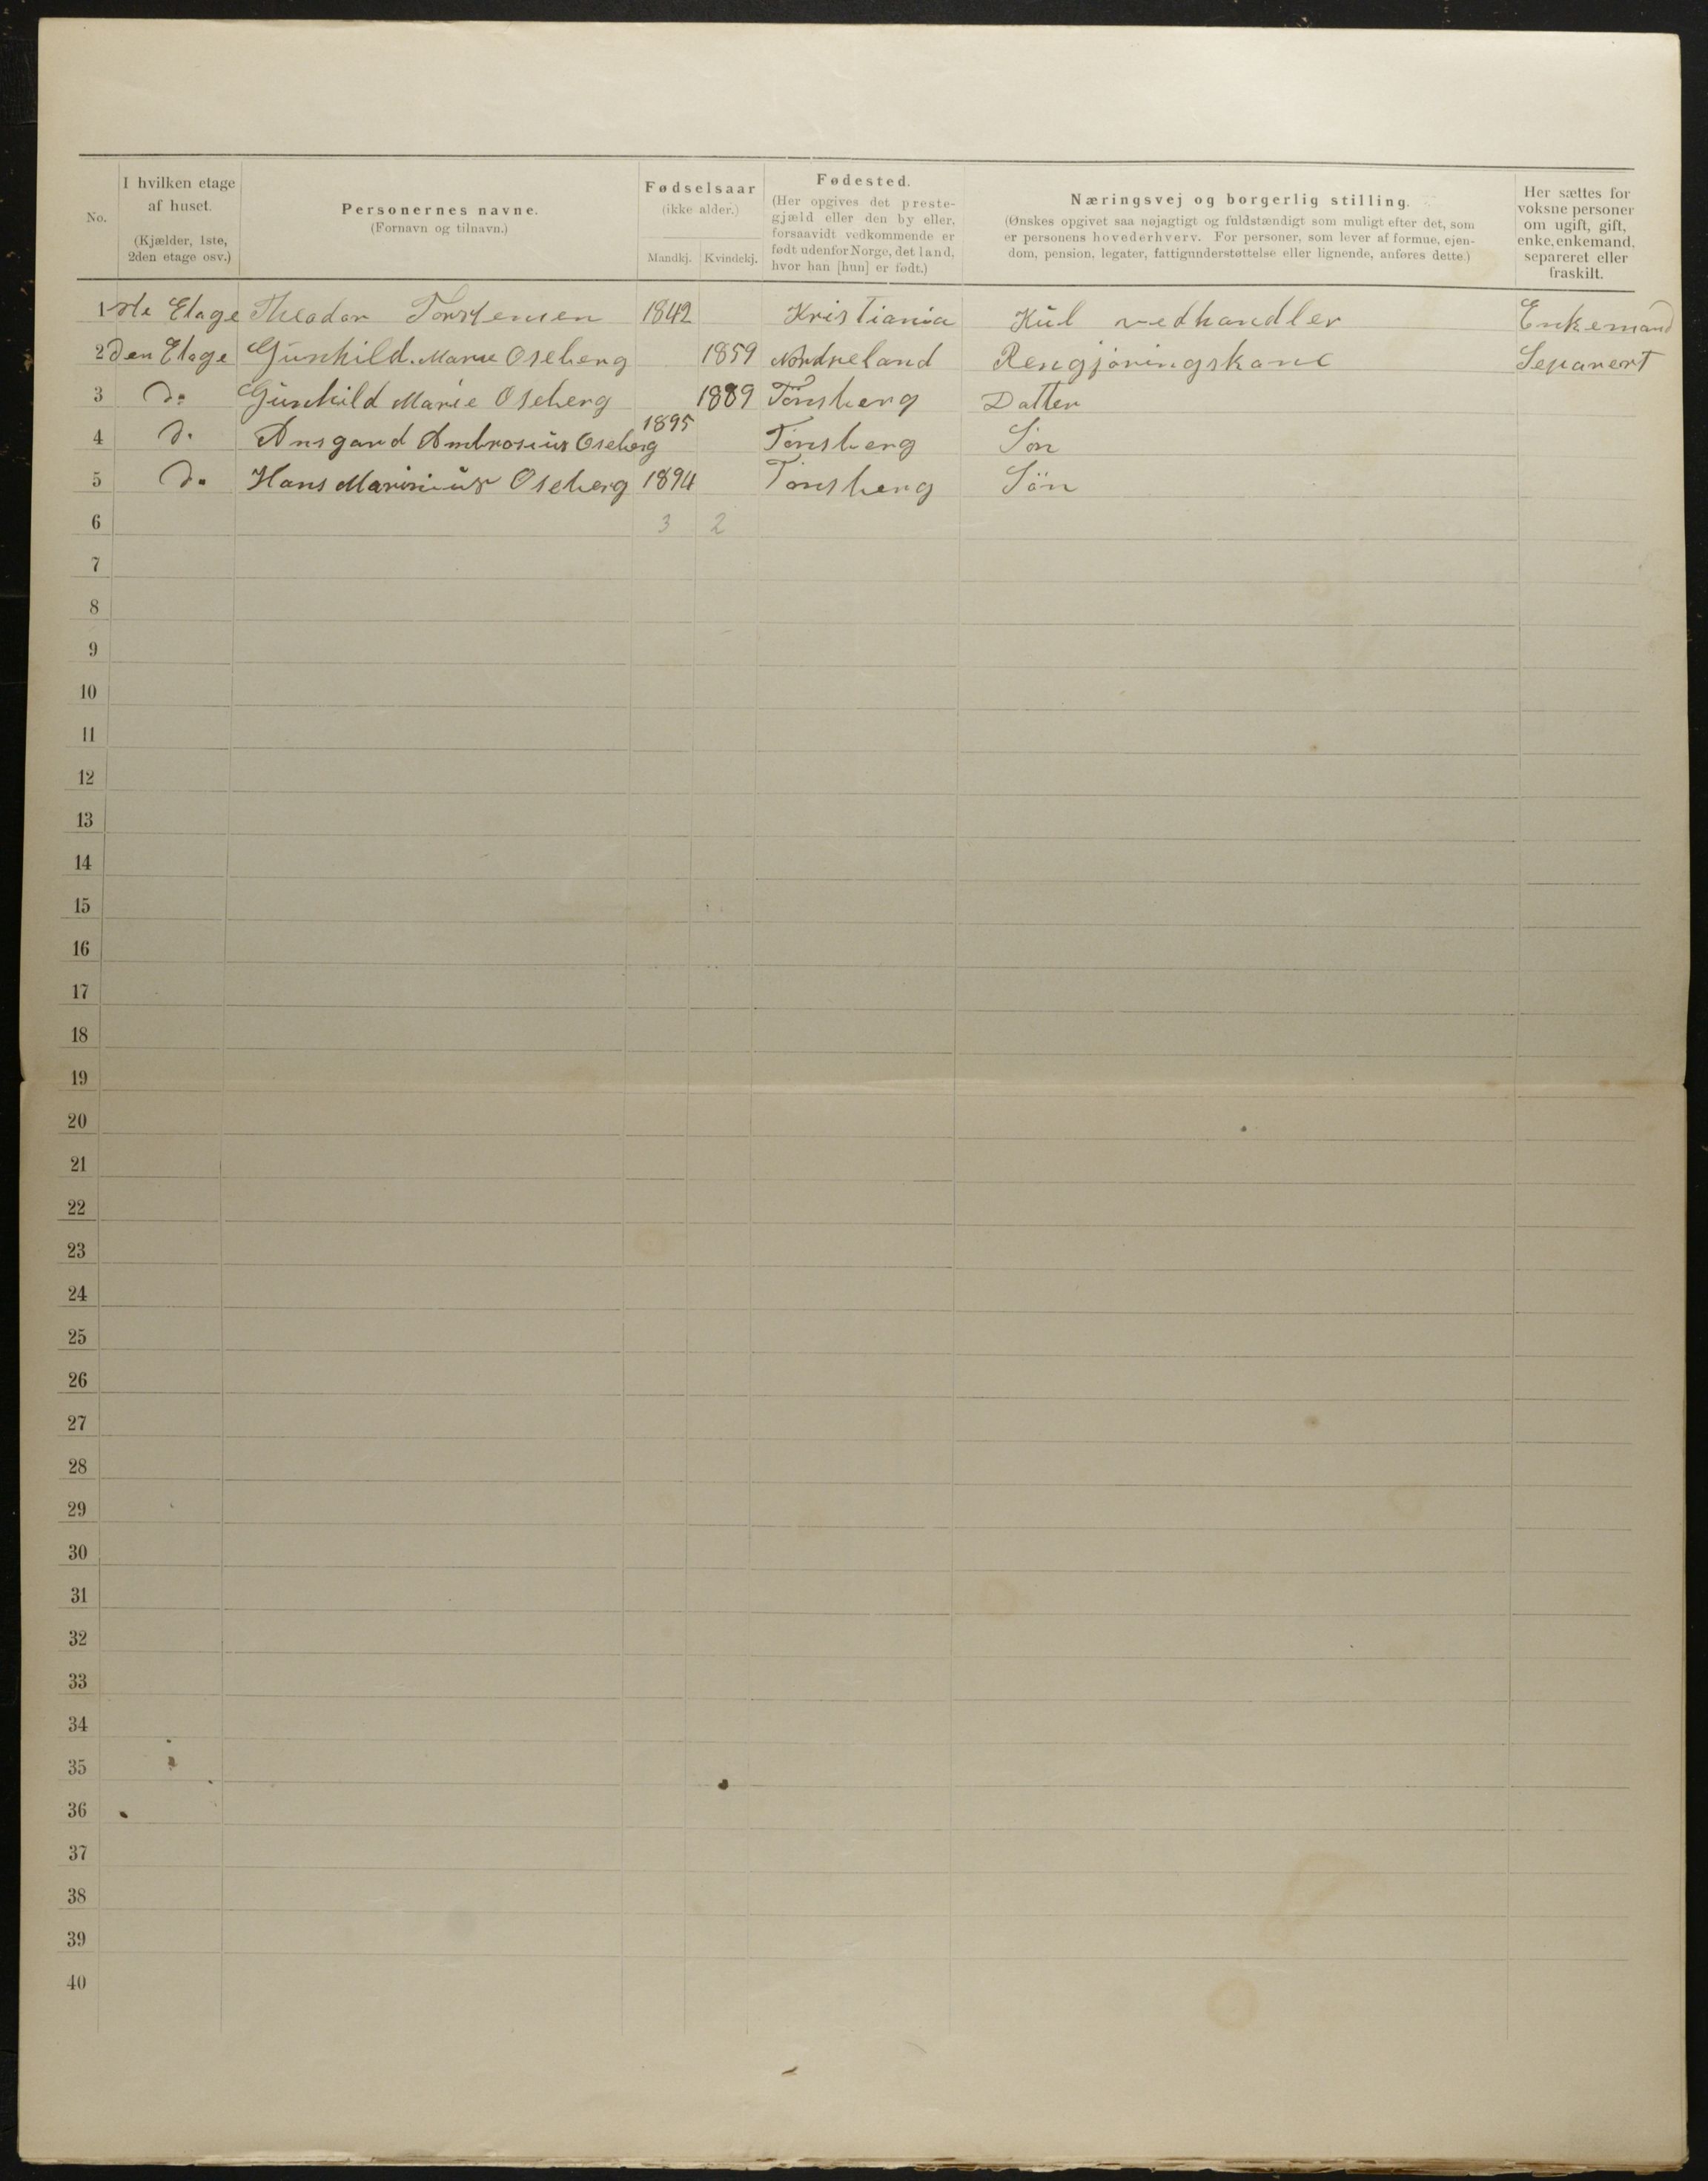 No.
I hvilken etage af huset. (Kjælder, 1ste, 2den etage osv.)
Personernes navne. (Fornavn og tilnavn.)
Fødselsaar (ikke alder.)
Mandkj.
Kvindekj.
Fødested. (Her opgives det prestegjæld eller den by eller, forsaavidt vedkommende er født udenfor Norge, det land, hvor han [hun] er født.)
Næringsvej og borgerlig stilling. (Ønskes opgivet saa nøjagtigt og fuldstændigt som muligt efter det, som er personens hovederhverv. For personer, som lever af formue, ejendom, pension, legater, fattigunderstøttelse eller lignende, anføres dette.)
Her sættes for voksne personer om ugift, gift, enke, enkemand, separeret eller fraskilt.
1 ste Etage Theodor Torstensen 1842 Kristiania Kul vedhandler Enkemand
2 den Etage Gunhild Marie Oseberg 1859 Nordreland Rengjøringskone Separert
3 do Gunhild Marie Oseberg 1889 Tønsberg Datter
4 do Ansgard Ambrosius Oseberg 1895 Tønsberg Søn
5 do Hans Marinius Oseberg 1894 Tønsberg Søn
6 3 2
7
8
9
10
11
12
13
14
15
16
17
18
19
20
21
22
23
24
25
26
27
28
29
30
31
32
33
34
35
36
37
38
39
40